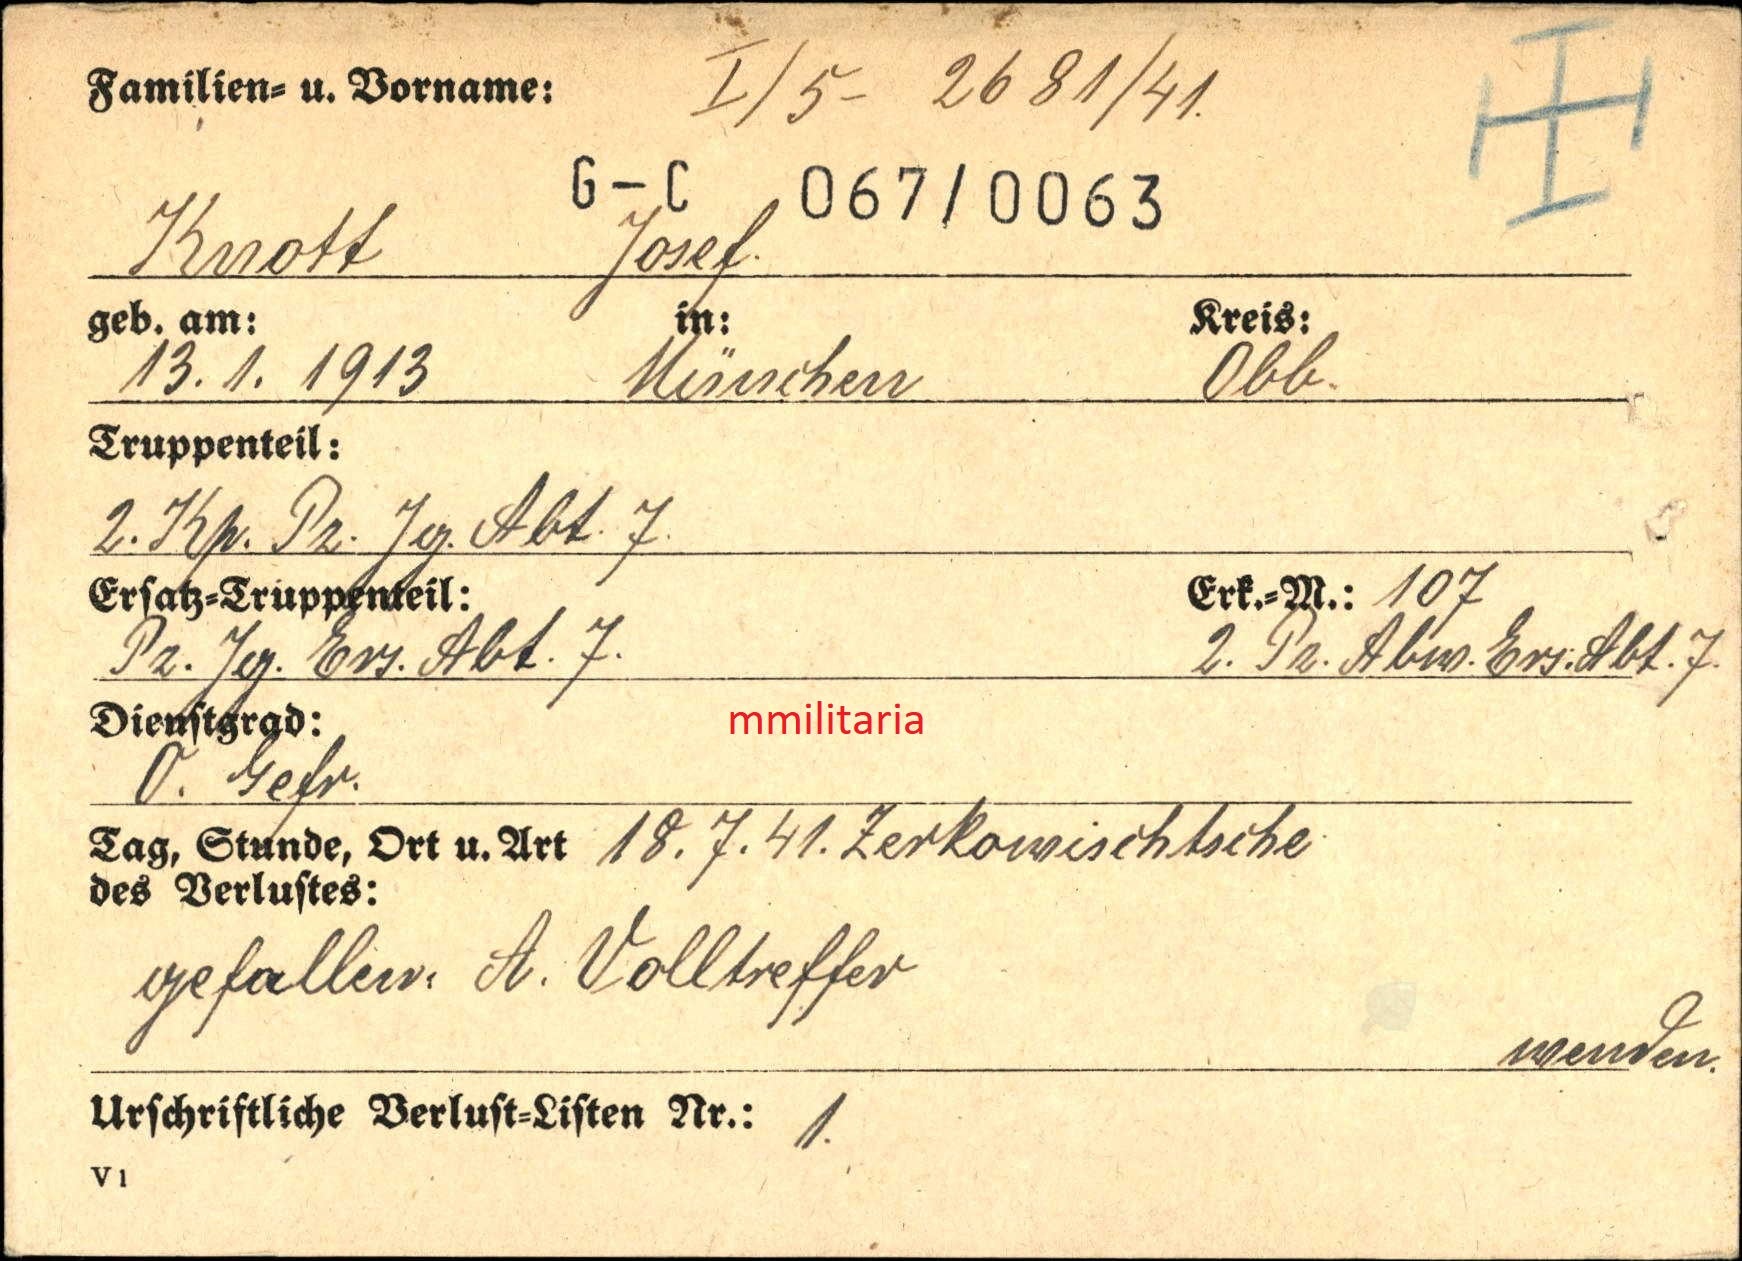 Familien- u. Vorname: I/5- 2681/41.
G-C 067/0063
Knott Josef.
geb. am: in: Kreis:
13. 1. 1913 München Obb.
Truppenteil:
2. Kp. Pz. Jg. Abt. 7.
Ersatz-Truppenteil: Erk.-M.: 107
Pz. Jg. Ers. Abt. 7. 2. Pz. Abw. Ers. Abt. 7.
Dienstgrad:
mmilitaria
O. Gefr.
Tag, Stunde, Ort u. Art 18. 7. 41. Zerkowischtsche
des Verlustes:
gefallen: A. Volltreffer
wenden.
Urschriftliche Verlust-Listen Nr.: 1.
V 1